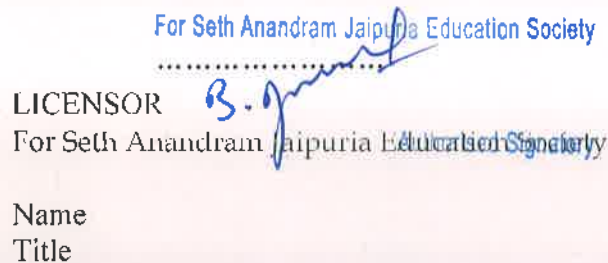 For Seth Anandram Jaipuria Education Society
....................
LICENSOR
For Seth Anandram Jaipuria Education Society
Authorised Signatory
Name
Title